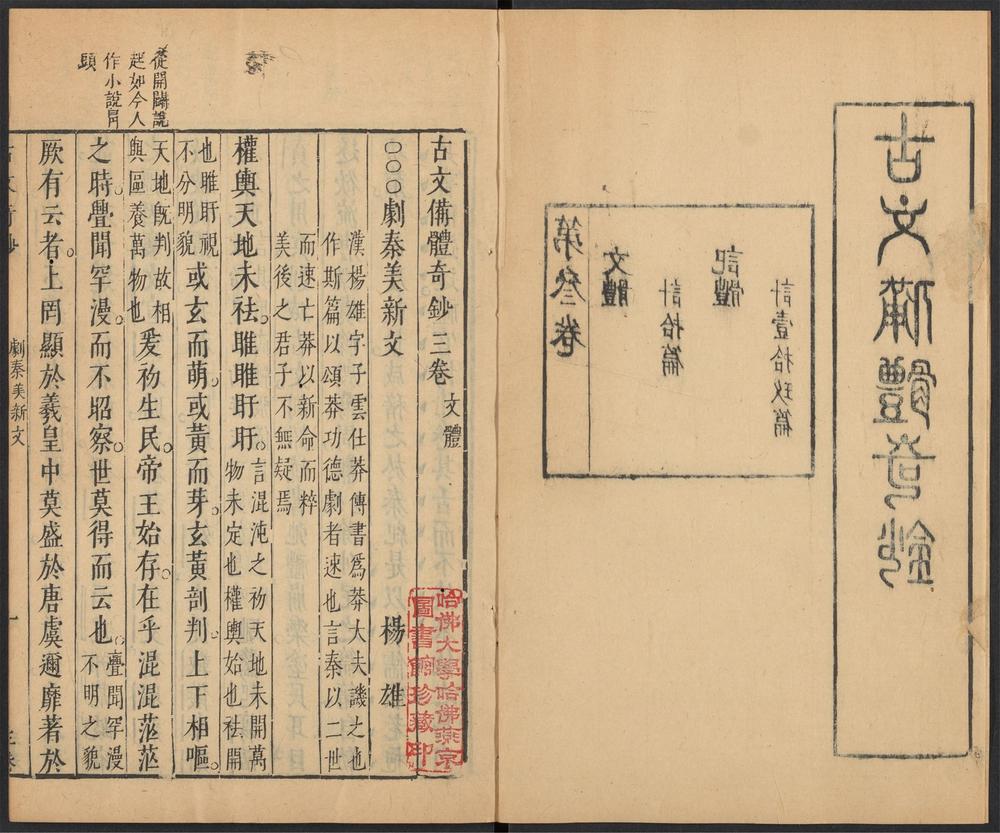 古文備體奇鈔
計壹拾玖篇
記體
計拾篇
文體
第叁卷
古文備體奇鈔三卷 文體
○○○劇秦美新文 楊雄
漢楊雄字子雲仕莽傳書爲莽大夫譏之也
作斯篇以頌莽功德劇者速也言秦以二世
而速亡莽以新命而粹
美後之君子不無疑焉
權輿天地未祛。睢睢盱盱。
言混沌之初天地未開萬
物未定也權輿始也祛開
也睢盱視
不分明貌
或玄而萌。或黄而芽。玄黄剖判。上下相嘔。
天地旣判故相
與區養萬物也
爰初生民。帝王始存。在乎混混茫茫
之時。疊聞罕漫。而不昭察。世莫得而云也。
疊聞罕漫
不明之貌
厥有云者。上罔顯於羲皇中莫盛於唐虞邇靡著於
劇秦美新文
一
從開闢說
起如今人
作小說冐
頭
哈佛大學哈佛燕京
圖書館珍藏印